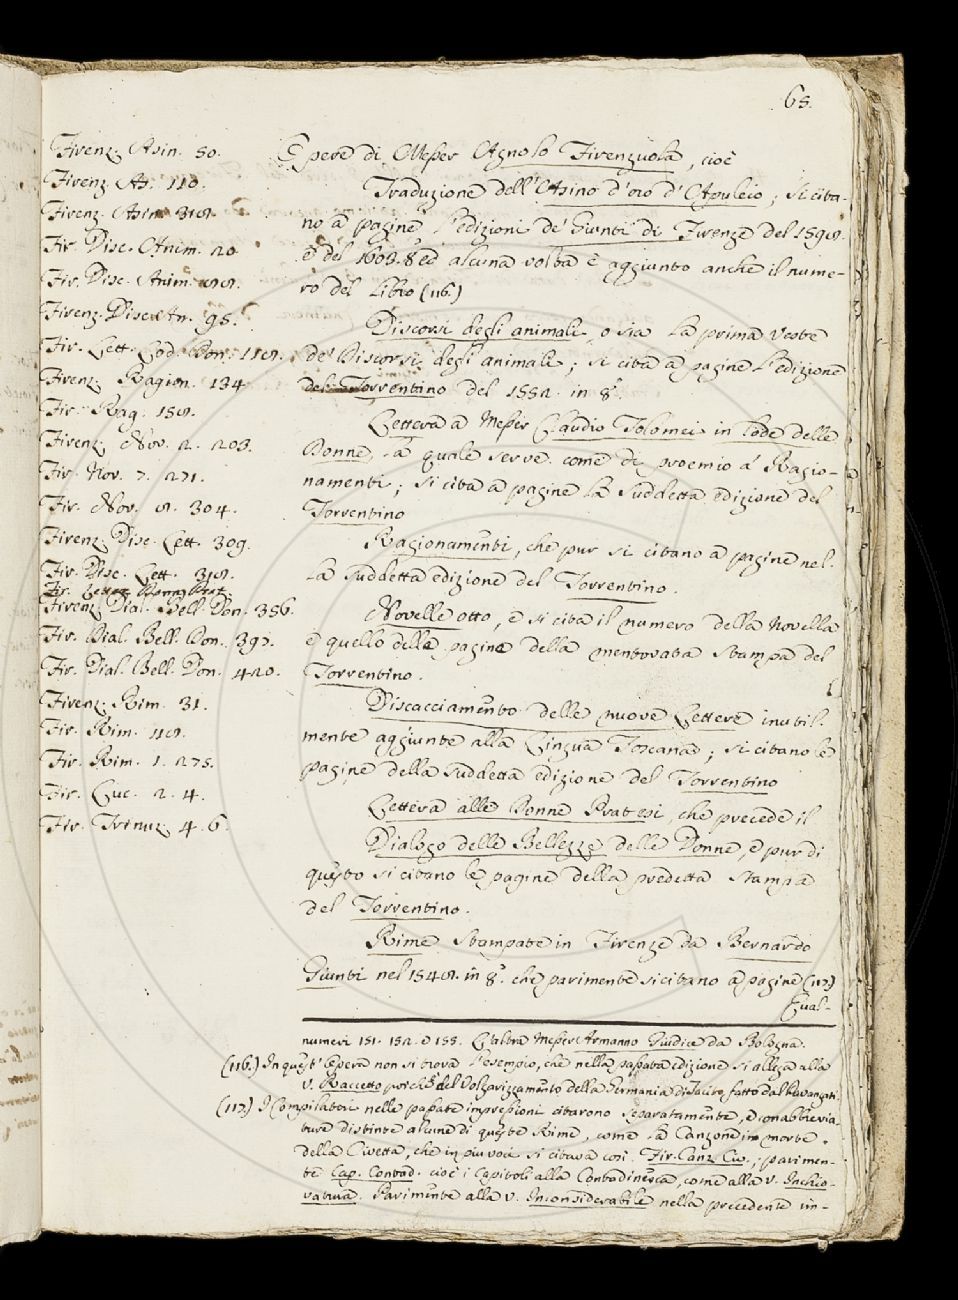 65.
Firenz. Asin. 50.
Firenz. As. 110.
Firenz. Asin. 319.
Fir. Disc. Anim. 20
Fir. Disc. Anim. 99.
Firenz. Disc. An. 95.
Fir. Lett. Lod. Don. 119.
Firenz. Ragion. 134
Fir. Rag. 159.
Firenz. Nov. 2. 203.
Fir. Nov. 7. 271.
Fir. Nov. 9. 304.
Firenz. Disc. Lett. 309.
Fir. Disc. Lett. 319.
Fir. Letter. Donn. Prat.
Firenz. Dial. Bell. Don. 356.
Fir. Dial. Bell. Don. 397.
Fir. Dial. Bell. Don. 420.
Firenz. Rim. 31.
Fir. Rim. 119.
Fir. Rim. 1. 275.
Fir. Luc. 2. 4.
Fir. Trinuz. 4. 6.
Opere di Messer Agnolo Firenzuola, cioè
Traduzione dell'Asino d'oro d'Apuleio; si cita-
no a pagine l'edizioni de' Giunti di Firenze del 1598.
e del 1603. 8° ed alcuna volta è aggiunto anche il nume-
ro del Libro (116.)
Discorsi degli animali, o sia la prima veste
de' Discorsi degli animali; si cita a pagine l'edizione
del Torrentino del 1552. in 8°.
Lettera a Messer Claudio Tolomei in lode delle
Donne, la quale serve come di proemio a' Ragio-
namenti; si cita a pagine la suddetta edizione del
Torrentino
Ragionamenti, che pur si citano a pagine nel-
la suddetta edizione del Torrentino.
Novelle otto, e si cita il numero della Novella
e quello della pagina della mentovata stampa del
Torrentino.
Discacciamento delle nuove Lettere inutil-
mente aggiunte alla Lingua Toscana; si citano le
pagine della suddetta edizione del Torrentino
Lettera alle Donne Pratesi, che precede il
Dialogo delle Bellezze delle Donne, e pur di
questo si citano le pagine della predetta stampa
del Torrentino.
Rime stampate in Firenze da Bernardo
Giunti nel 1549. in 8°. che parimente si citano a pagine (117.)
Qual-
numeri 151. 152. e 155. L'altra Messer Armanno Giudice da Bologna.
(116.) In quest'Opera non si trova l'esempio, che nella passata edizione si allega alla
v. Raccetto poich'è del Volgarizzamento della Germania di Tacito fatto dal Davanzati.
(117.) I Compilatori nelle passate impressioni citarono separatamente, e con abbrevia-
ture distinte alcune di queste Rime, come la Canzone in morte
della Civetta, che in più voci si citava così. Fir. Canz. Civ.; parimen-
te Cap. Contad. cioè i Capitoli alla Contadinesca, come alla v. Inchio-
vatura. Parimente alla v. Inconsiderabile nella precedente im-